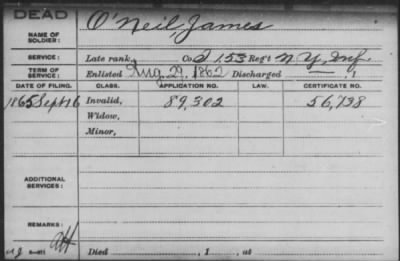 DEAD
NAME OF SOLDIER: O'Neil, James
SERVICE: Late rank, Co. I 153 Reg't N.Y. Inf.
TERM OF SERVICE: Enlisted Aug. 29, 1862 Discharged — , 1
DATE OF FILING. CLASS. APPLICATION NO. LAW. CERTIFICATE NO.
1865 Sept 16 Invalid, 89,302 56,738
Widow,
Minor,
ADDITIONAL SERVICES:
REMARKS:
Died , 1 , at